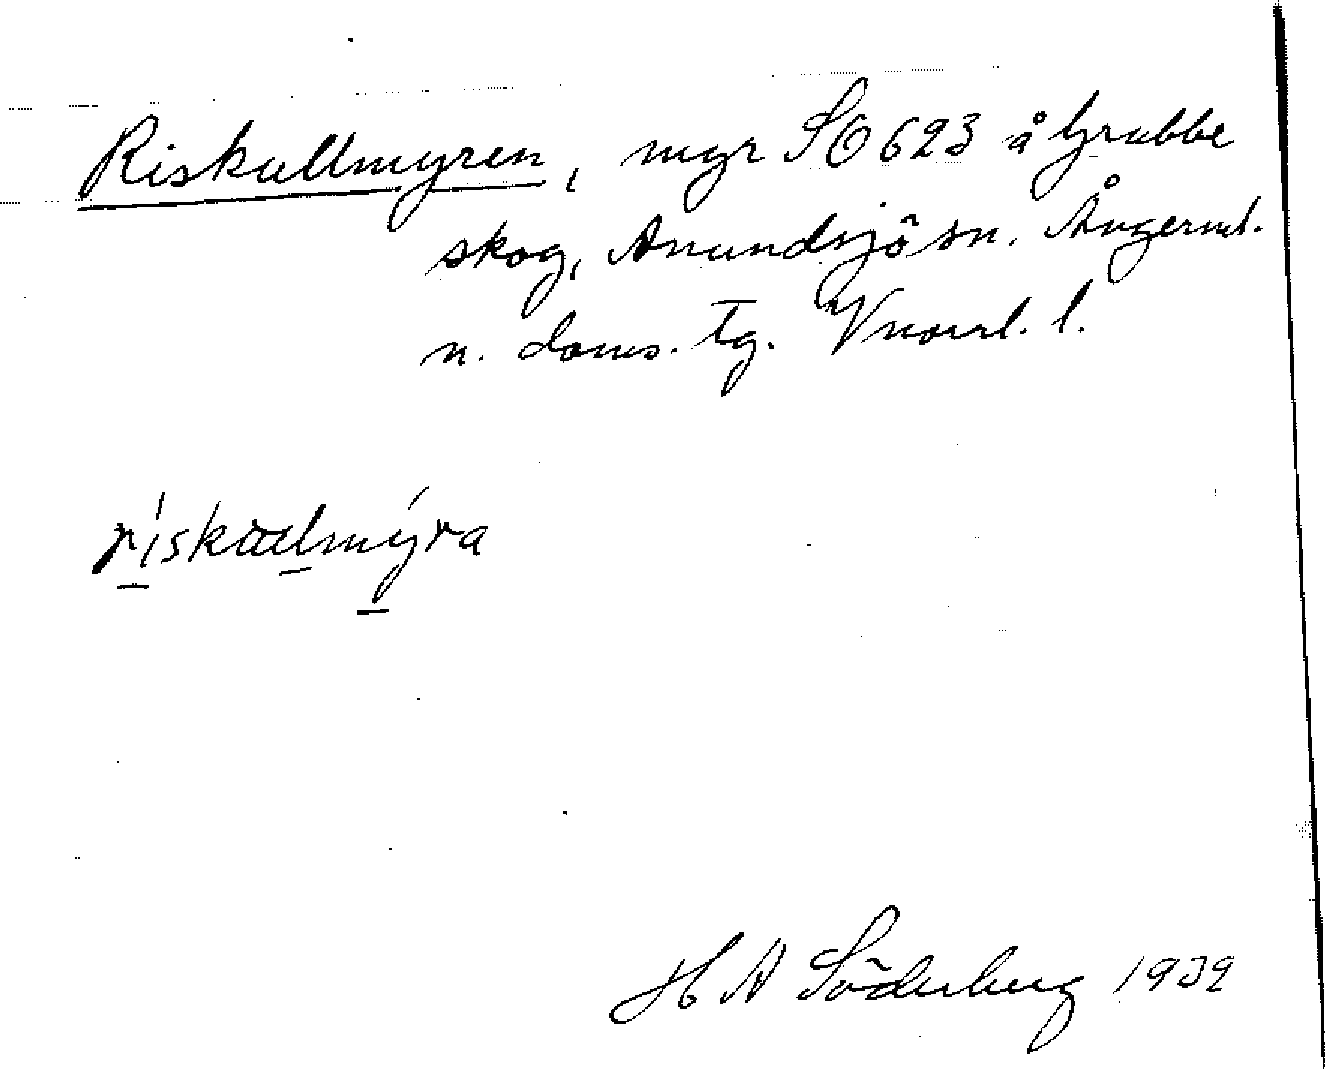 Riskullmyren, myr SO 623 å Grubbe
skog, Anundsjö sn. Ångerml.
n. doms. tg. Vnorrl. l.
riskullmýra
H A Söderberg 1939